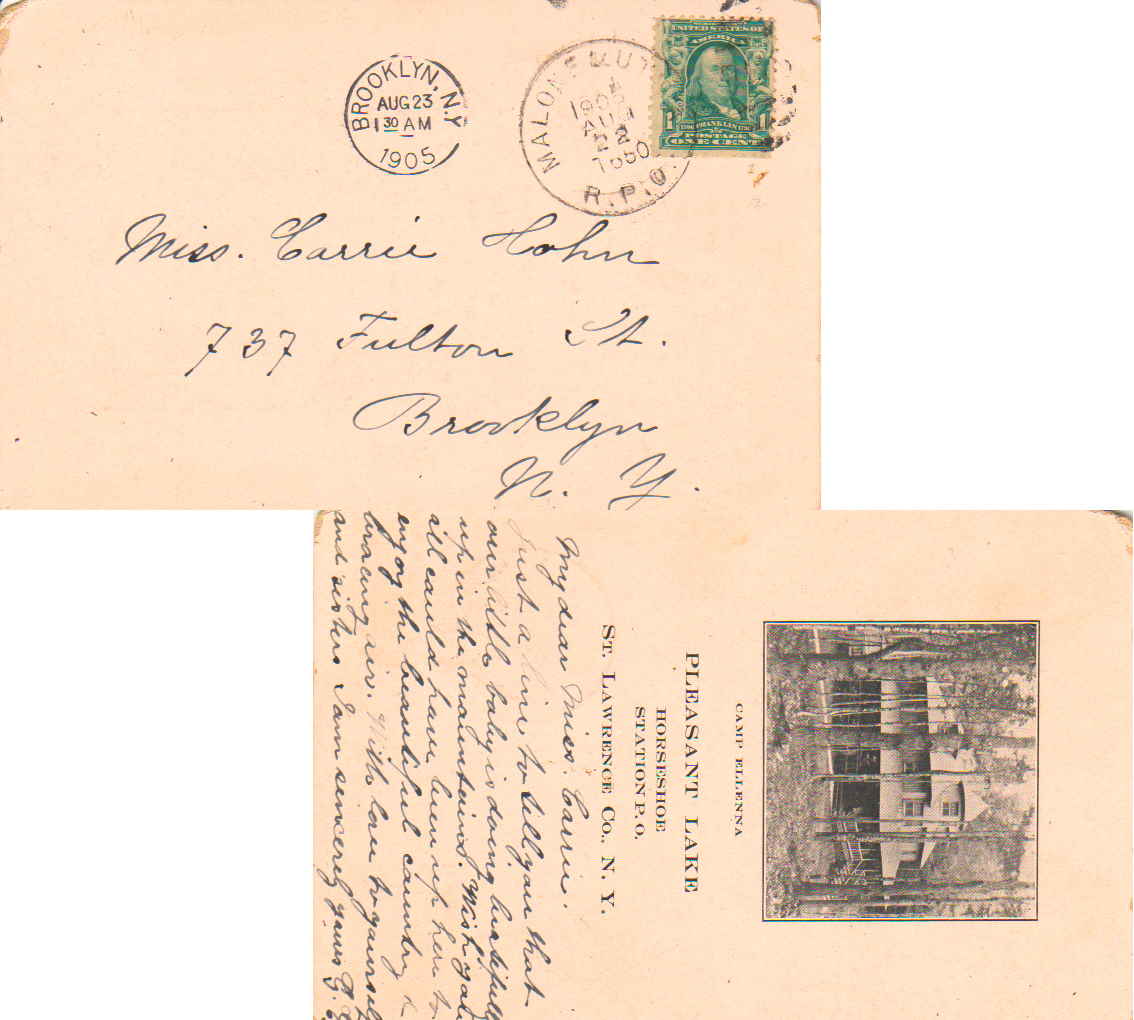 BROOKLYN, N.Y.
AUG 23
1 30 AM
1905
MALONE & UT
1905
AUG
22
R.P.O.
UNITED STATES OF
AMERICA
1 FRANKLIN 1
POSTAGE
ONE CENT
Miss. Carrie Hohn
737 Fulton St.
Brooklyn
N. Y.
CAMP ELLENNA
PLEASANT LAKE
HORSESHOE
STATION P.O.
ST. LAWRENCE CO., N. Y.
My dear Miss. Carrie.
Just a line to tell you that
our little baby is doing beautifully
up in the mountains. Wish you
all could have been up here to
enjoy the beautiful country &
bracing air. With love to yourself
and sisters I am sincerely yours